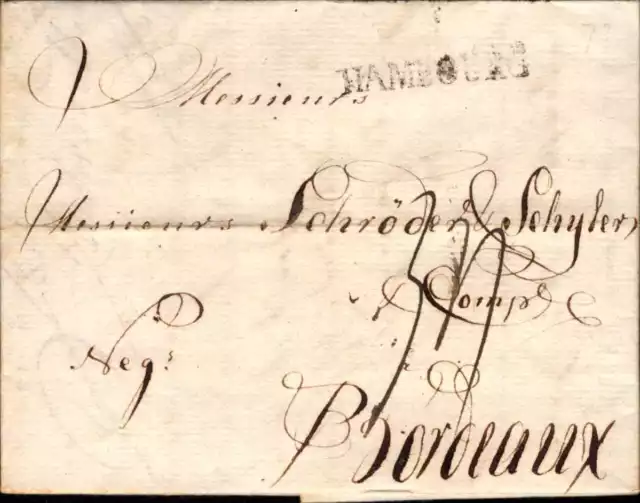 HAMBOURG
Messieurs
Messieurs Schröder & Schyler,
& Compe
Negs
à
Bordeaux